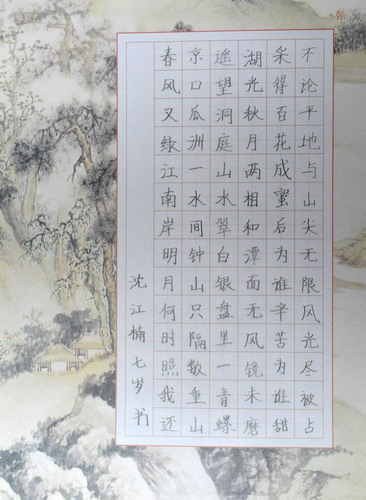 不论平地与山尖无限风光尽被占
采得百花成蜜后为谁辛苦为谁甜
湖光秋月两相和潭面无风镜未磨
遥望洞庭山水翠白银盘里一青螺
京口瓜洲一水间钟山只隔数重山
春风又绿江南岸明月何时照我还
沈江楠七岁书